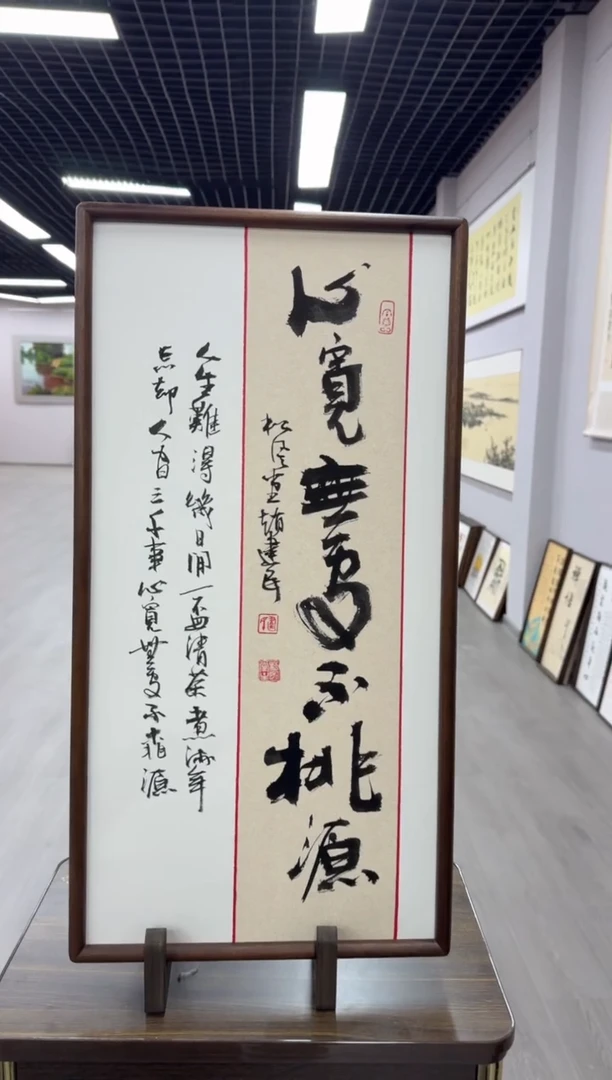 心寬無處不桃源
趙建民
人生難得幾日閒一盃清茶煮流年
忘却人間三千事心寬無處不桃源